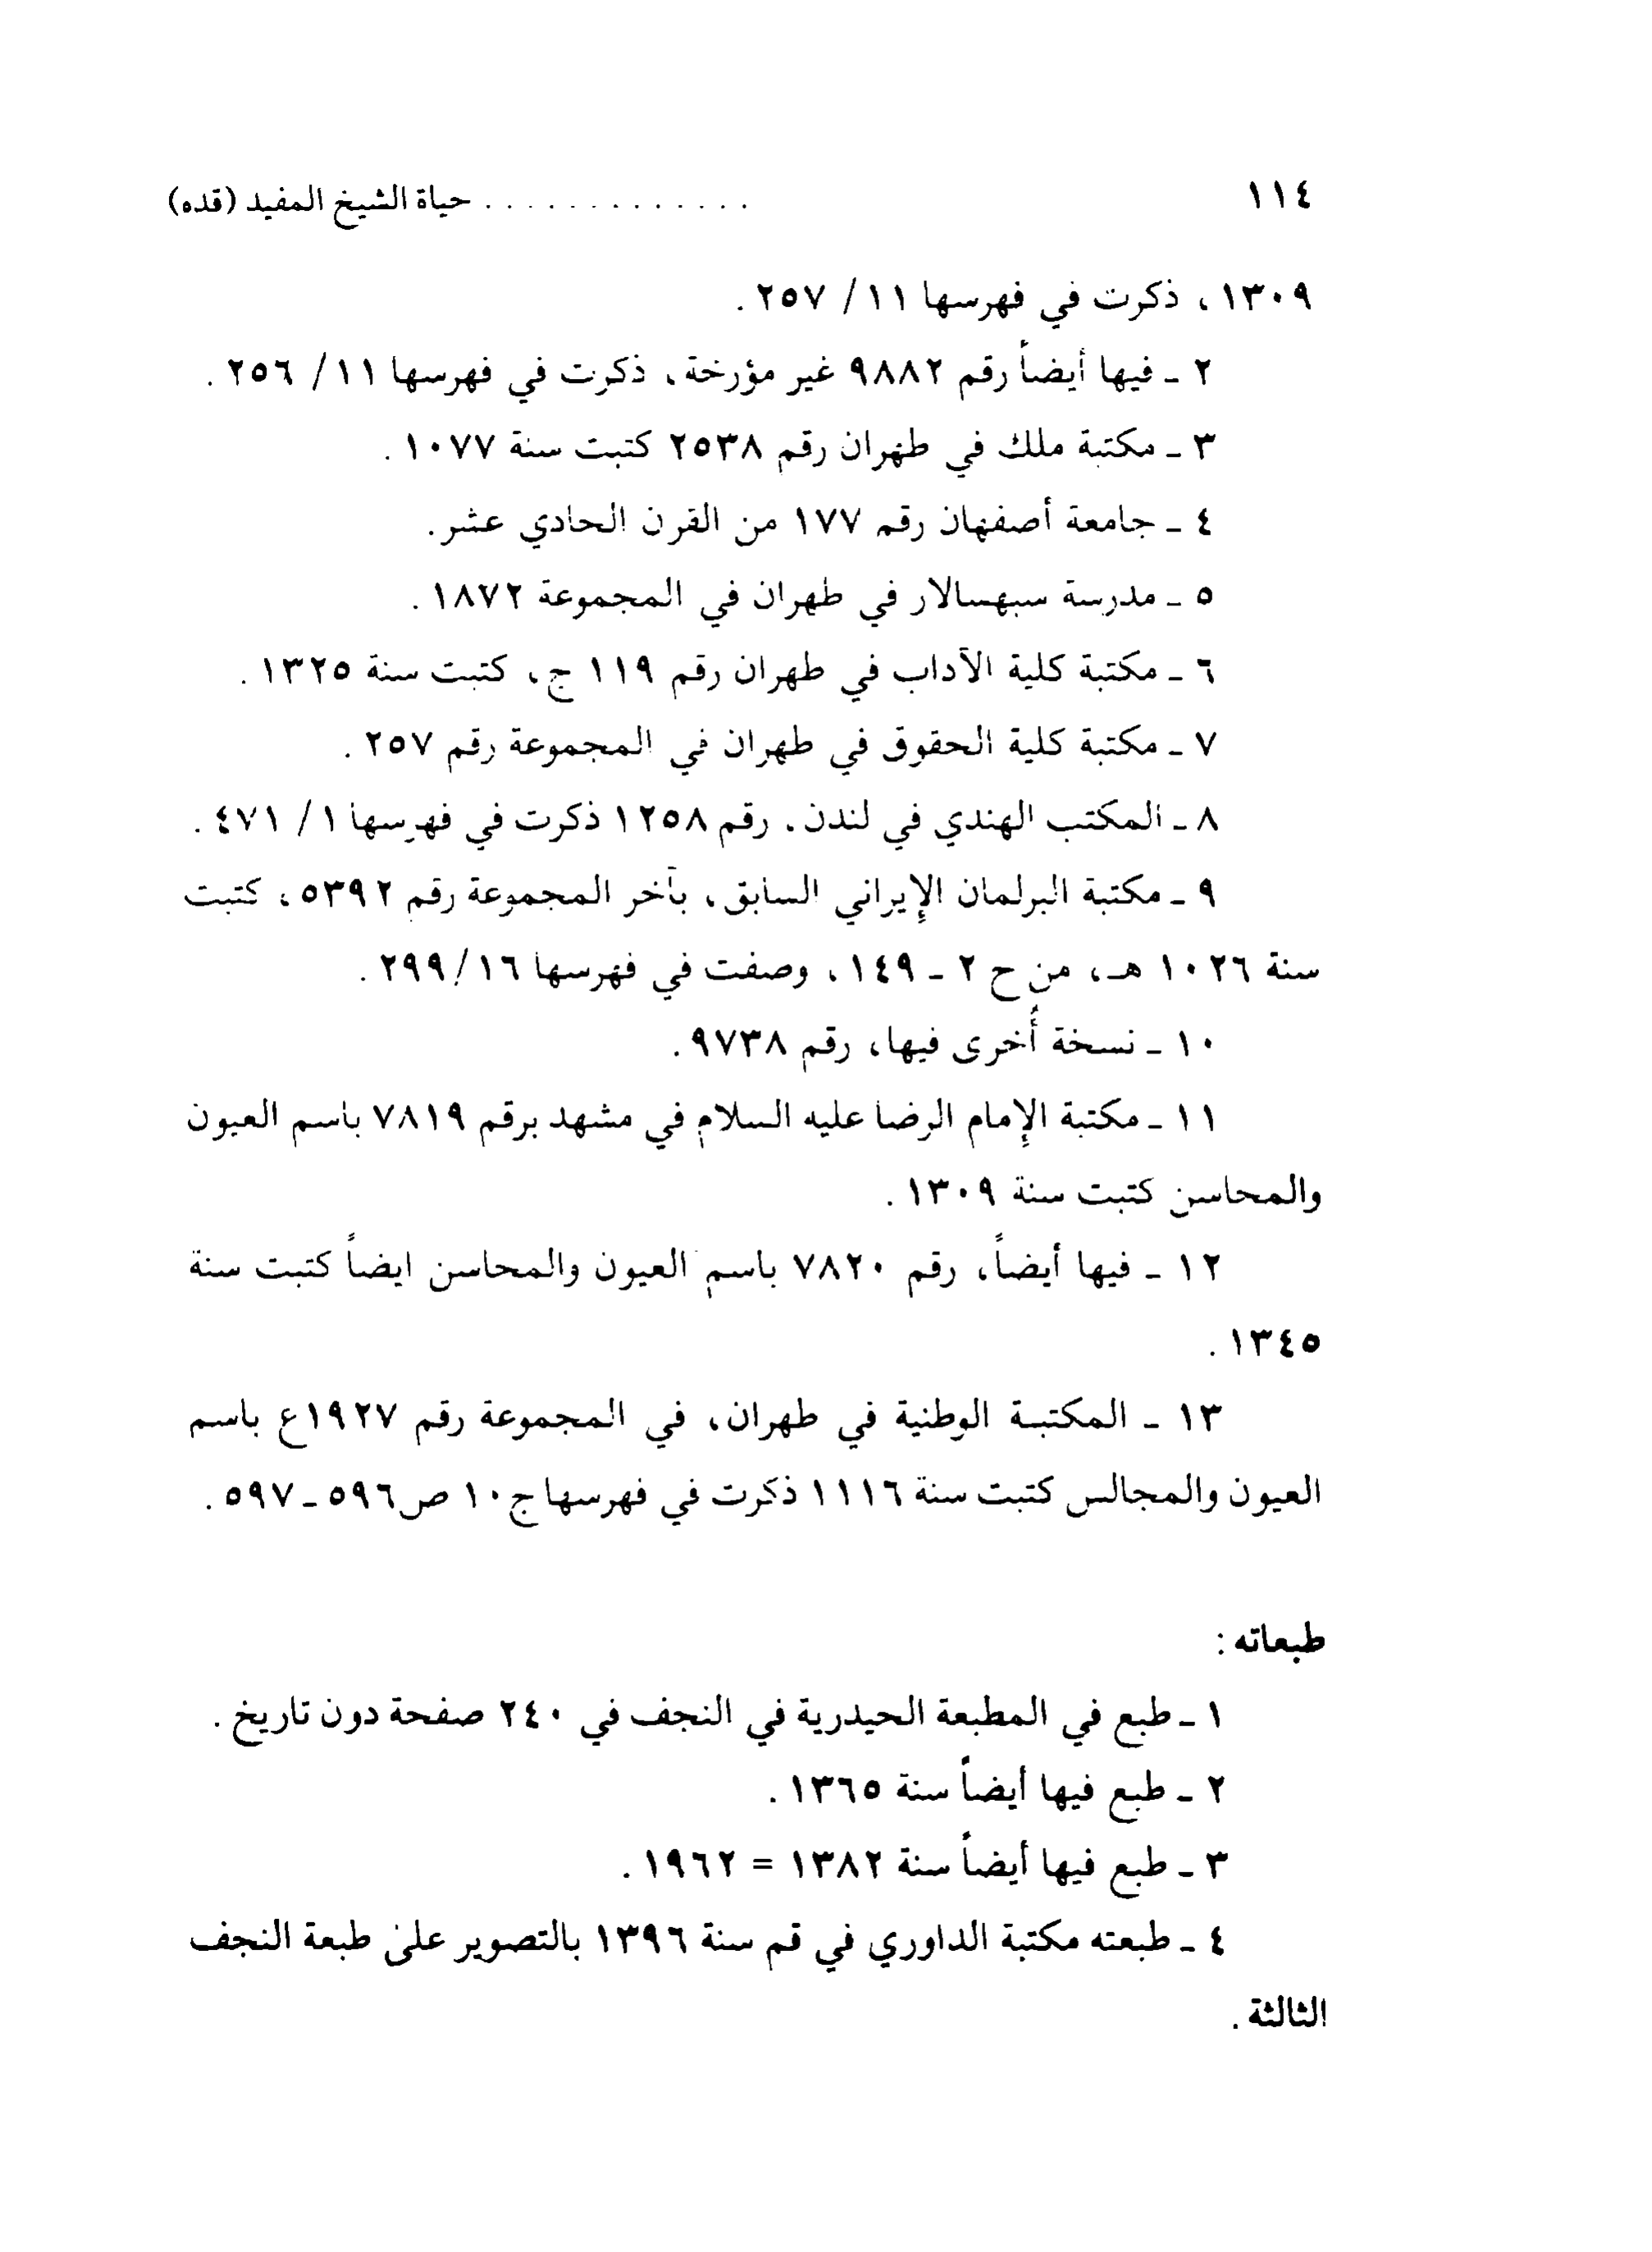 ١١٤ ............. حياة الشيخ المفيد (قده)
١٣٠٩، ذكرت في فهرسها ١١/ ٢٥٧.
٢ ـ فيها أيضاً رقم ٩٨٨٢ غير مؤرخة، ذكرت في فهرسها ١١/ ٢٥٦.
٣ ـ مكتبة ملك في طهران رقم ٢٥٣٨ كتبت سنة ١٠٧٧.
٤ ـ جامعة أصفهان رقم ١٧٧ من القرن الحادي عشر.
٥ ـ مدرسة سبهسالار في طهران في المجموعة ١٨٧٢.
٦ ـ مكتبة كلية الآداب في طهران رقم ١١٩ ج، كتبت سنة ١٣٢٥.
٧ ـ مكتبة كلية الحقوق في طهران في المجموعة رقم ٢٥٧.
٨ ـ المكتب الهندي في لندن. رقم ١٢٥٨ ذكرت في فهرسها ١/ ٤٧١.
٩ ـ مكتبة البرلمان الإيراني السابق، بآخر المجموعة رقم ٥٣٩٢، كتبت
سنة ١٠٢٦ هـ، من ح ٢ ـ ١٤٩، وصفت في فهرسها ١٦/ ٢٩٩.
١٠ ـ نسخة أُخرى فيها، رقم ٩٧٣٨.
١١ ـ مكتبة الإمام الرضا عليه السلام في مشهد برقم ٧٨١٩ باسم العيون
والمحاسن كتبت سنة ١٣٠٩.
١٢ ـ فيها أيضاً، رقم ٧٨٢٠ باسم العيون والمحاسن ايضاً كتبت سنة
١٣٤٥.
١٣ ـ المكتبة الوطنية في طهران، في المجموعة رقم ١٩٢٧ع باسم
العيون والمجالس كتبت سنة ١١١٦ ذكرت في فهرسها ج١٠ ص٥٩٦ ـ ٥٩٧.
طبعاته:
١ ـ طبع في المطبعة الحيدرية في النجف في ٢٤٠ صفحة دون تاريخ.
٢ ـ طبع فيها أيضاً سنة ١٣٦٥.
٣ ـ طبع فيها أيضاً سنة ١٣٨٢ = ١٩٦٢.
٤ ـ طبعته مكتبة الداوري في قم سنة ١٣٩٦ بالتصوير علىٰ طبعة النجف
الثالثة.